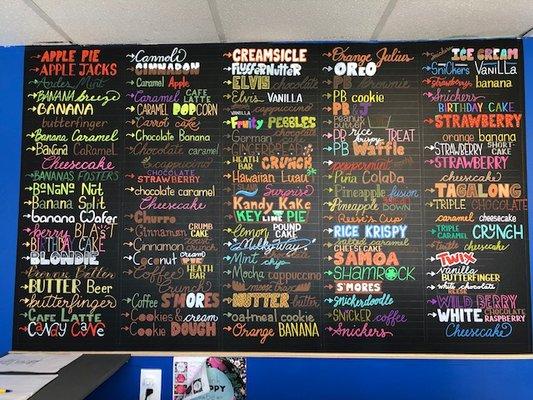 APPLE PIE
APPLE JACKS
Andes Mint
BANANA breeze
BANANA
butterfinger
Banana Caramel
BANANA CARAMEL
Cheesecake
BANANAS FOSTERS
BANANA Nut
Banana Split
banana Wafer
berry BLAST
BIRTHDAY CAKE
BLONDIE
BUTTER Beer
butterfinger
CAFE LATTE
CANDY CANE
Cannoli
CINNABON
Caramel Apple
Caramel CAFE LATTE
CARAMEL POPCORN
Carrot cake
Chocolate Banana
Chocolate caramel
cappuccino
CHOCOLATE STRAWBERRY
chocolate caramel
Cheesecake
Churro
Cinnamon CRUMB CAKE
Cinnamon TOAST CRUNCH
Coconut cream
Coffee HEATH BAR
Crunch
Coffee S'MORES
Cookies & cream
Cookie DOUGH
CREAMSICLE
FlufferNutter
ELVIS chocolate
Elvis VANILLA
cappuccino
Fruity PEBBLES
chocolate
GINGERBREAD
HEATH BAR CRUNCH
Hawaiian Luau
Surprise
Kandy Kake
KEY LIME PIE
Lemon POUND CAKE
Milkyway
Mint chip
Mocha cappuccino
moose tracks
NUTTER butter
oatmeal cookie
Orange BANANA
Orange Julius
OREO
PB BROWNIE
PB cookie
PB
PB
PB rice krispy TREAT
PB Waffle
peppermint
Piña Colada
Pineapple fusion
Pineapple UPSIDE DOWN
Reese's Cup
RICE KRISPY
SALTED CARAMEL
cheesecake
SAMOA
SHAMROCK
S'MORES
Snickerdoodle
SNICKER coffee
Snickers
Snickers ICE CREAM
Snickers Vanilla
Strawberry banana
Snickers
BIRTHDAY CAKE
STRAWBERRY
orange banana
STRAWBERRY SHORT CAKE
STRAWBERRY
cheesecake
TAGALONG
TRIPLE CHOCOLATE
caramel cheesecake
TRIPLE CARAMEL CRUNCH
Turtle cheesecake
TWIX
Vanilla BUTTERFINGER
white CHOCOLATE
REESE
WILD BERRY
WHITE CHOCOLATE RASPBERRY
Cheesecake